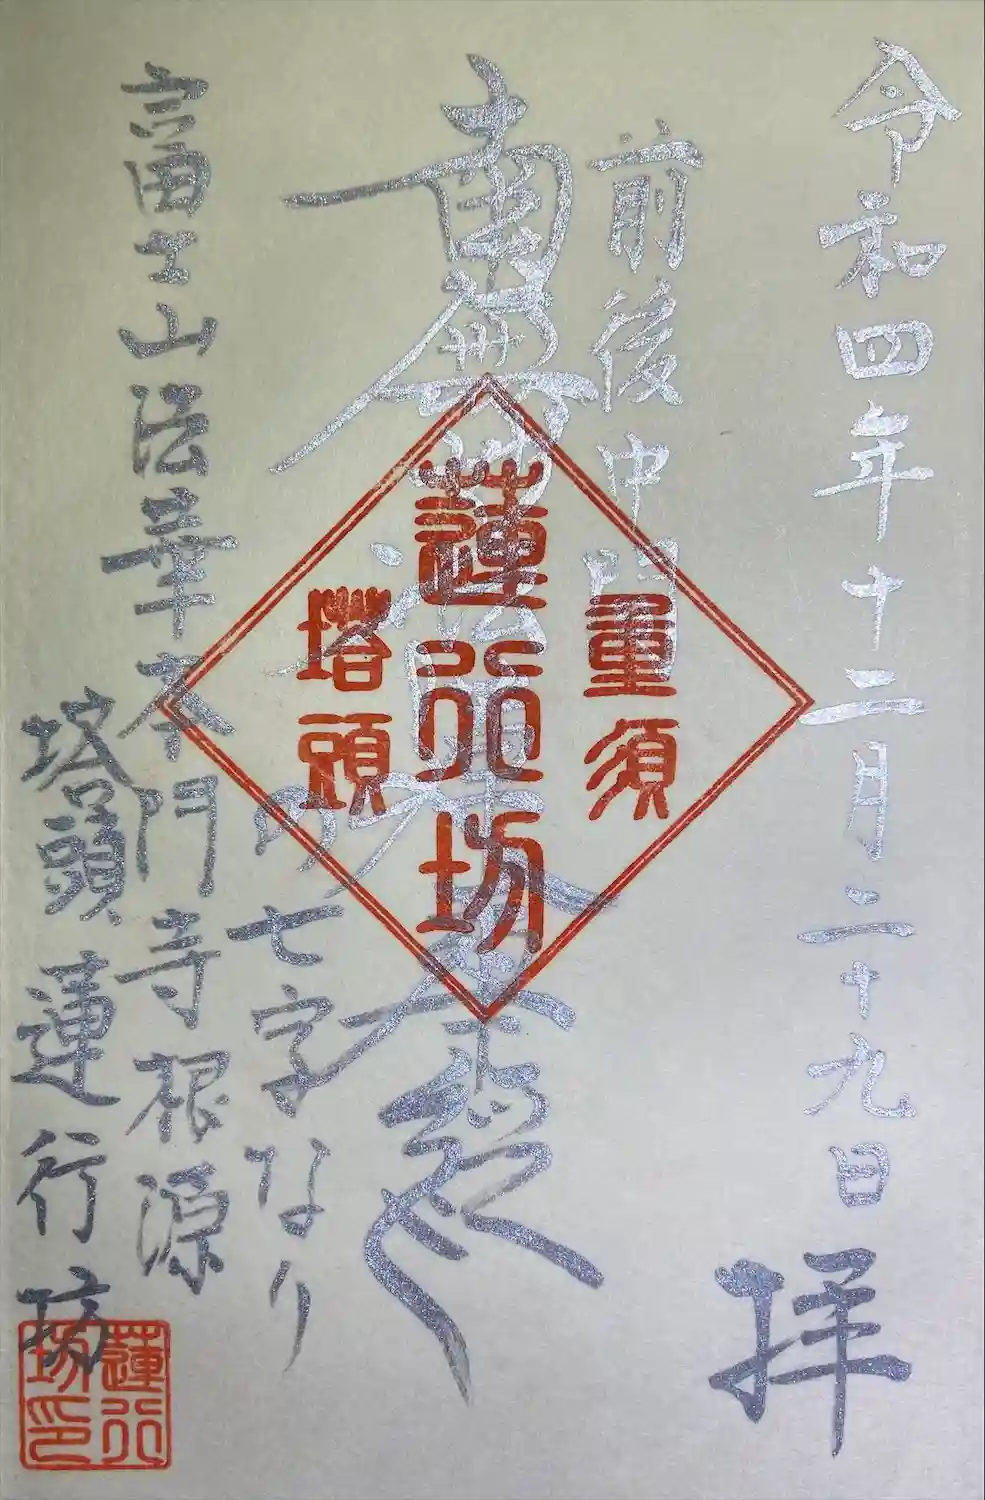 令和四年十二月二十九日
拝
前後中間
南無妙法蓮華経
の七字なり
富士山法華本門寺根源
塔頭蓮行坊
重須
蓮行坊
塔頭
蓮行
坊印